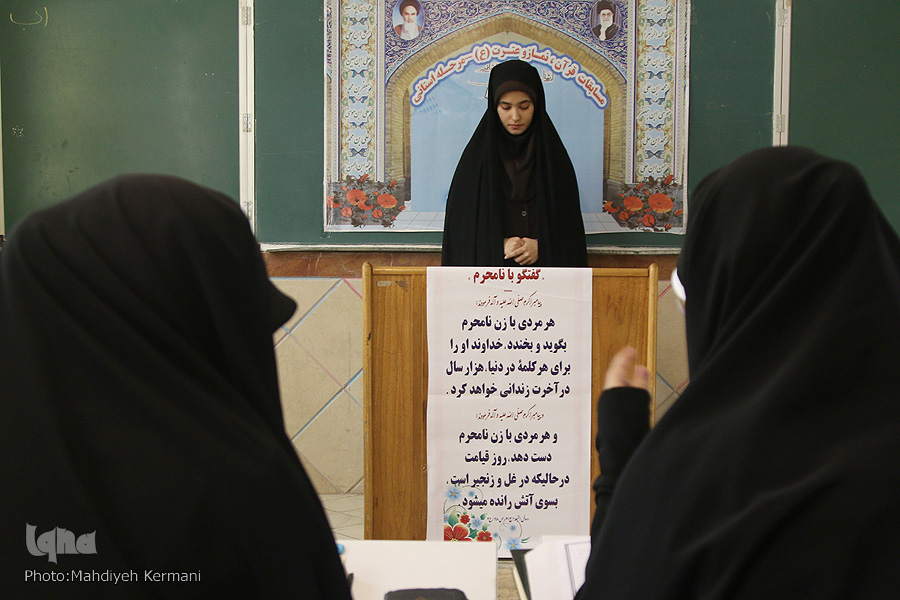 مسابقات قرآن، نماز و عترت (ع) - مرحله استانی
. گفتگو با نامحرم .
پیامبر اکرم صلی الله علیه و آله فرمودند:
هر مردی با زن نامحرم
بگوید و بخندد، خداوند او را
برای هر کلمهٔ در دنیا، هزار سال
در آخرت زندانی خواهد کرد .
و پیامبر اکرم صلی الله علیه و آله فرمودند:
و هر مردی با زن نامحرم
دست دهد، روز قیامت
درحالیکه در غل و زنجیر است ،
بسوی آتش رانده میشود .
iqna
Photo:Mahdiyeh Kermani